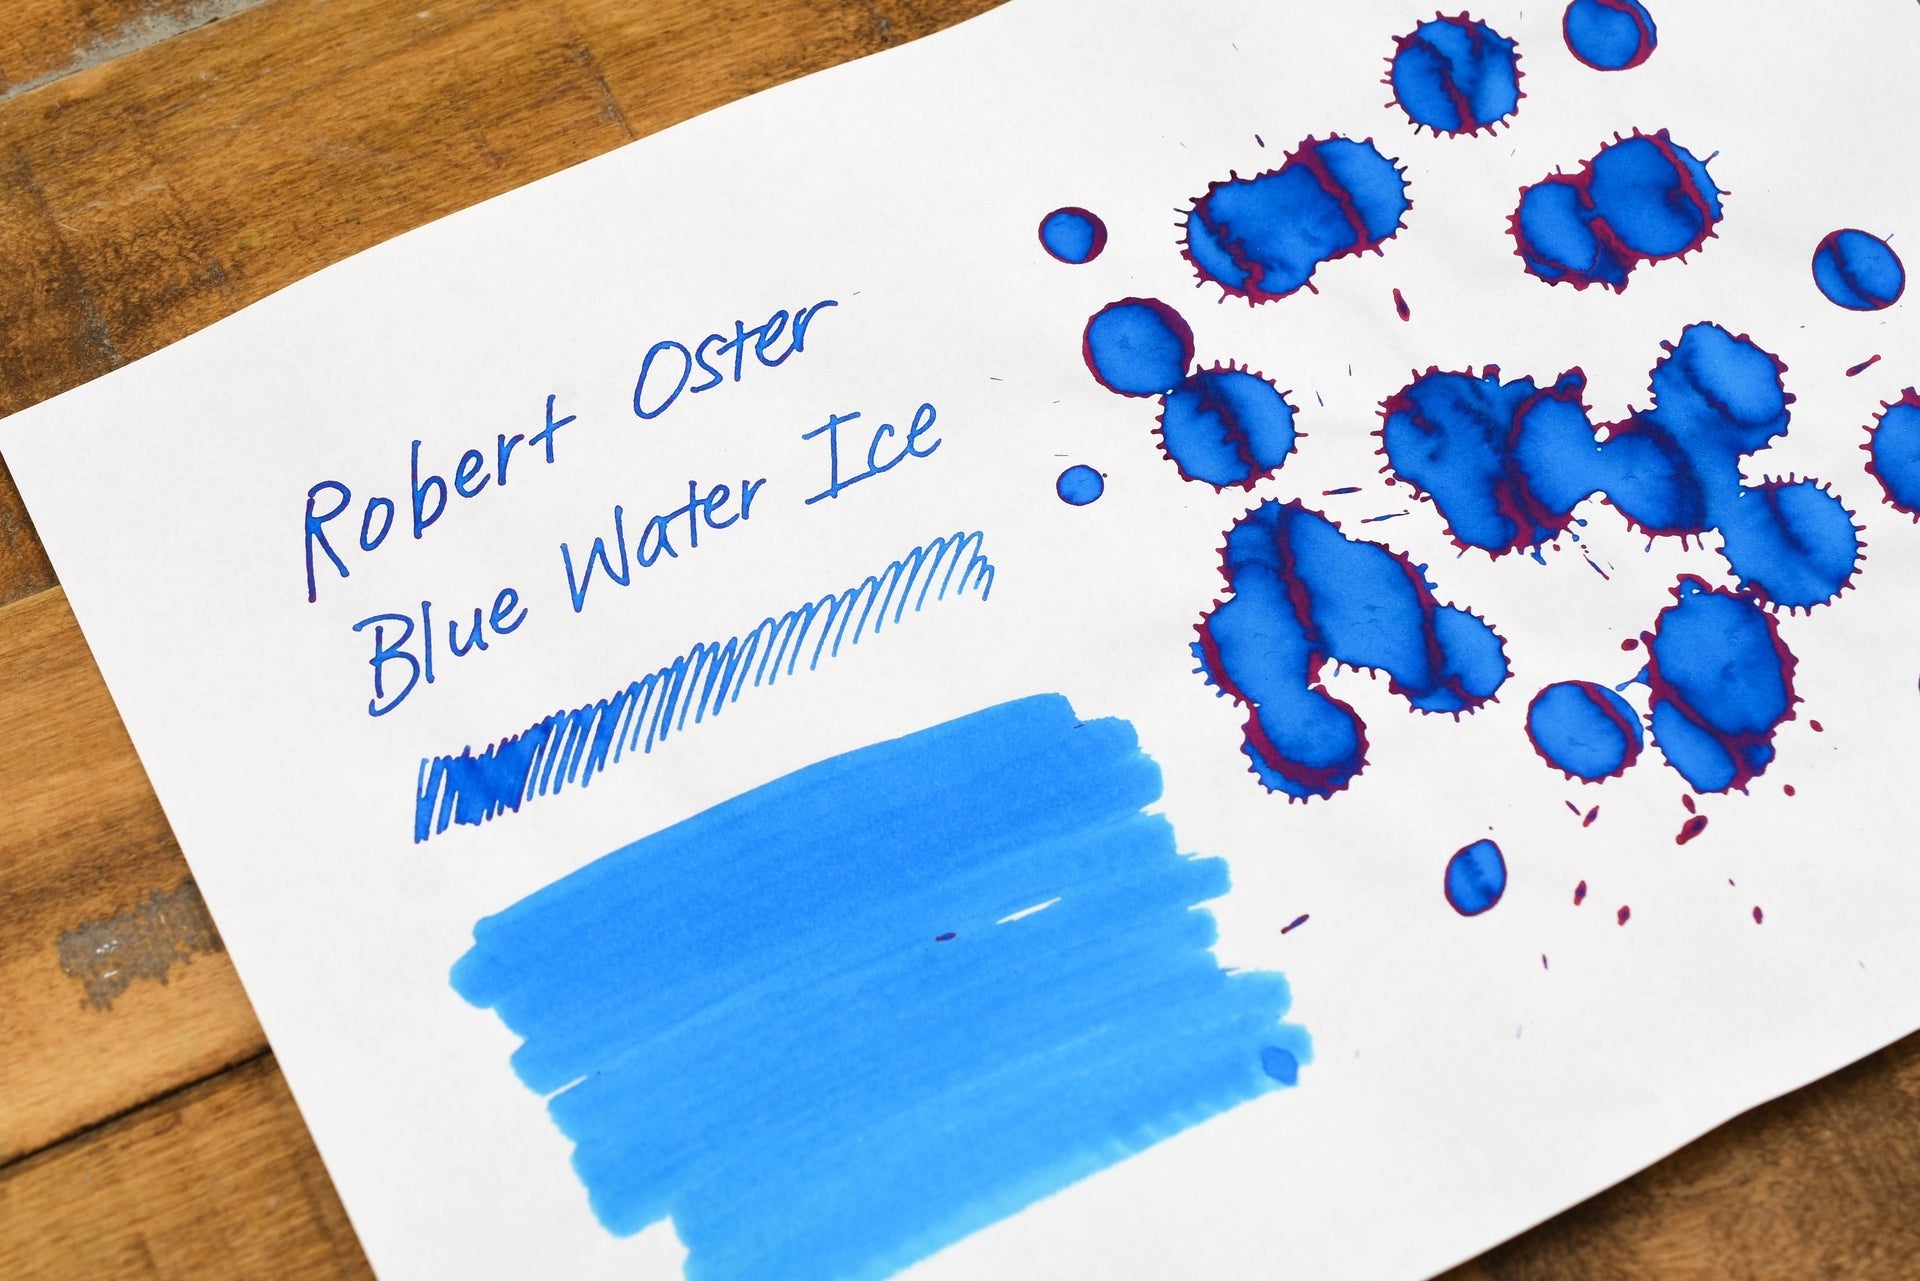 Robert Oster
Blue Water Ice